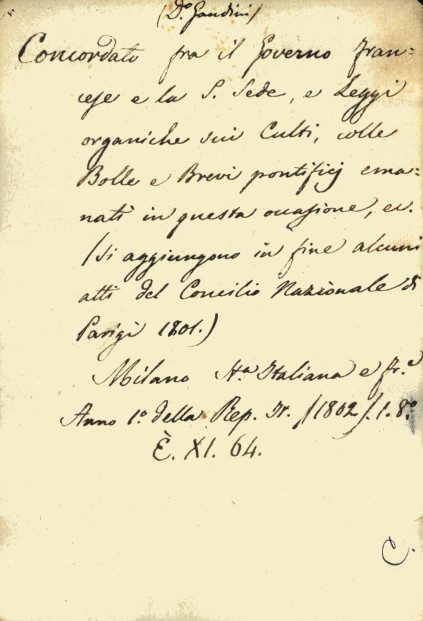 (D.º Gandini)
Concordato fra il Governo Fran=
cese e la S. Sede, e Leggi
organiche sui Culti, colle
Bolle e Brevi pontificj ema=
nati in questa occasione, ec.
(Si aggiungono in fine alcuni
atti del Concilio Nazionale di
Parigi 1801.)
Milano, St.ª Italiana e Fr.ª
Anno 1º della Rep. It. (1802). 1. 8.º
È. XI. 64.
C.